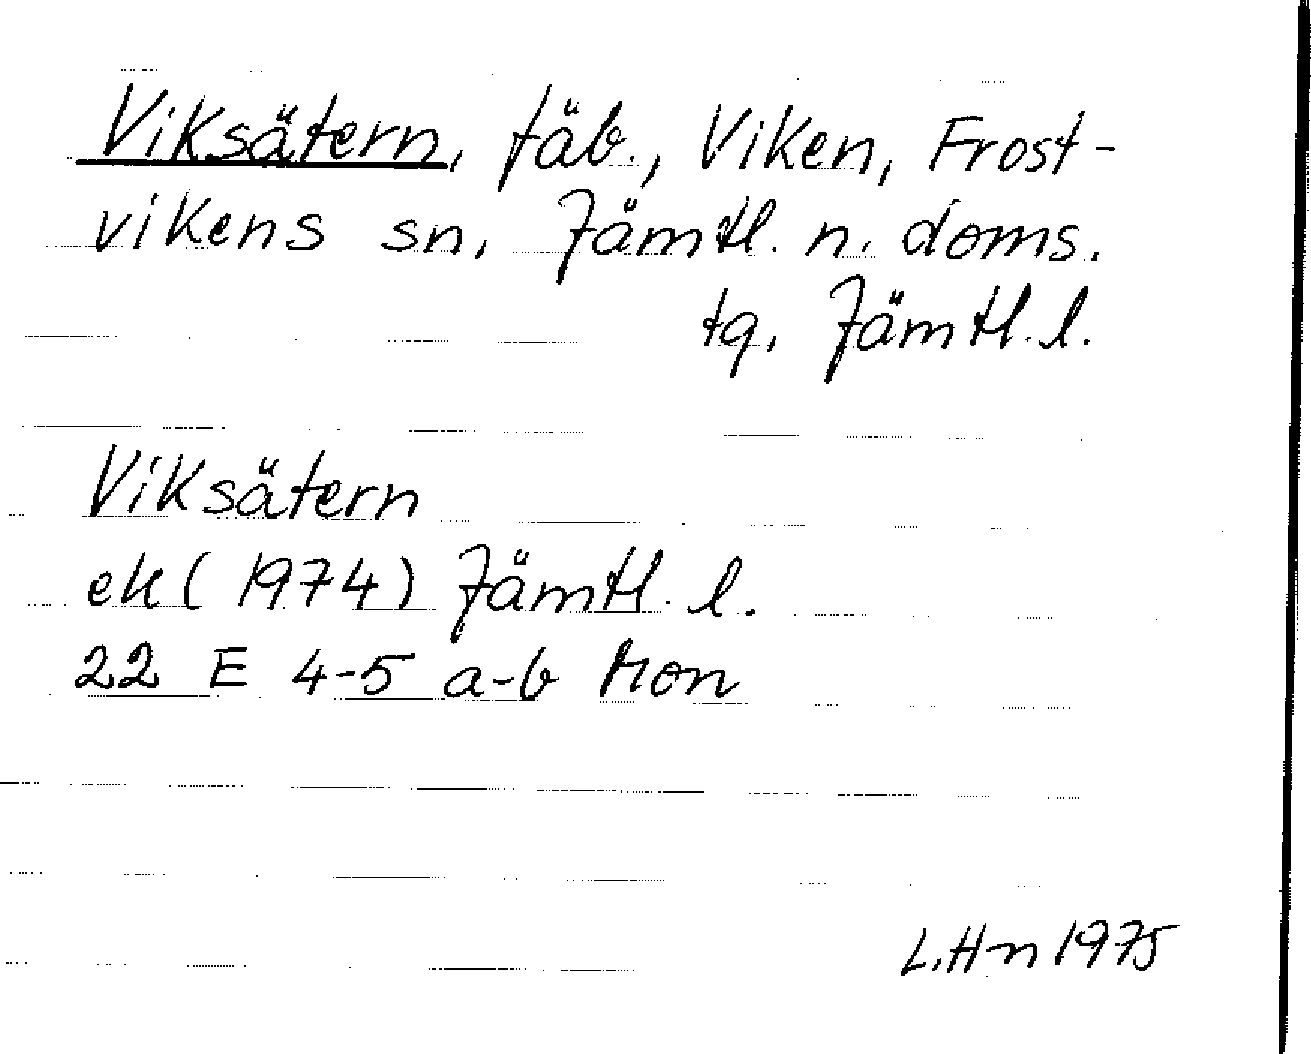 Viksätern, fäb., Viken, Frost-
vikens sn, Jämtl. n. doms.
tq, Jämtl. l.
Viksätern
ek (1974) Jämtl. l.
22 E 4-5 a-b Mon
L.Hn 1975